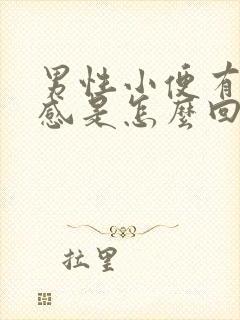 男性小便有
感是怎麼回
拉里